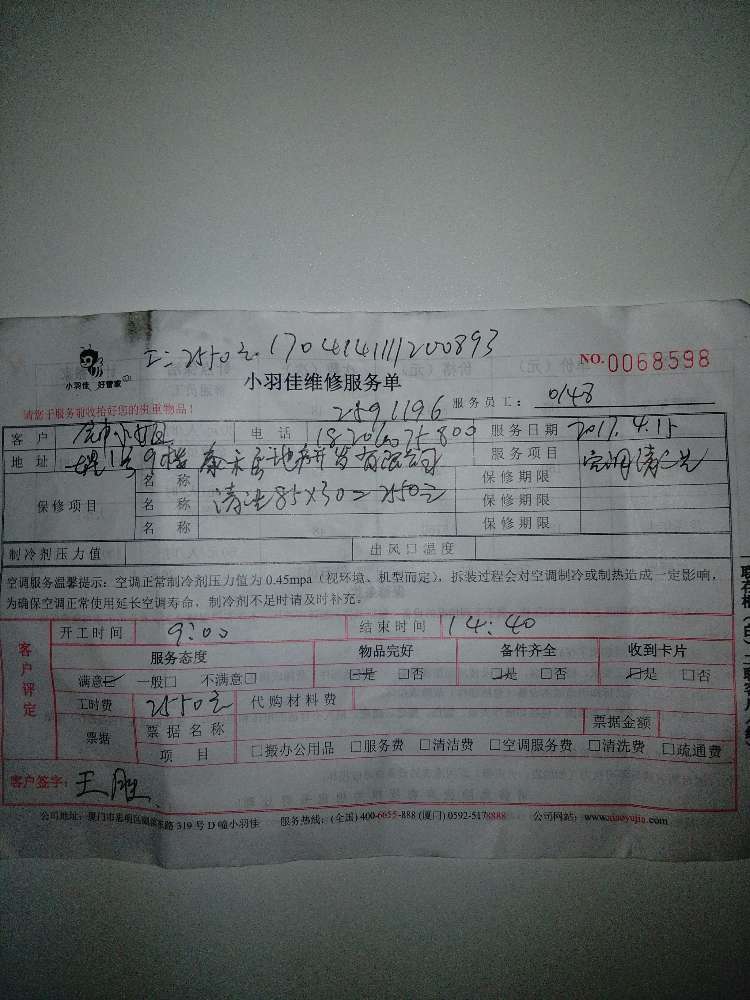 工:2550元.170414111200893
小羽佳 好管家
小羽佳维修服务单
NO.0068598
请您于服务前收拾好您的贵重物品!
2591196 服务员工: 0148
客户 电话 服务日期 2017.4.15
地址 1号9楼 房地产开发有限公司 服务项目 空调清洗
保修项目 名称 清洗85×30=2550元 保修期限
名称 保修期限
名称 保修期限
制冷剂压力值 出风口温度
空调服务温馨提示:空调正常制冷剂压力值为0.45mpa(视环境、机型而定),拆装过程会对空调制冷或制热造成一定影响,
为确保空调正常使用延长空调寿命,制冷剂不足时请及时补充。
客户评定
开工时间 9:00 结束时间 14:40
服务态度 物品完好 备件齐全 收到卡片
满意☑ 一般□ 不满意□ ☑是 □否 ☑是 □否 ☑是 □否
工时费 2550元 代购材料费
票据 票据名称 票据金额
项目 □搬办公用品 □服务费 □清洁费 □空调服务费 □清洗费 □疏通费
客户签字: 王胜
公司地址:厦门市思明区 路319号D幢小羽佳 服务热线:(全国)400-6655-888(厦门)0592-5178888 公司网站:www.xiaoyujia.com